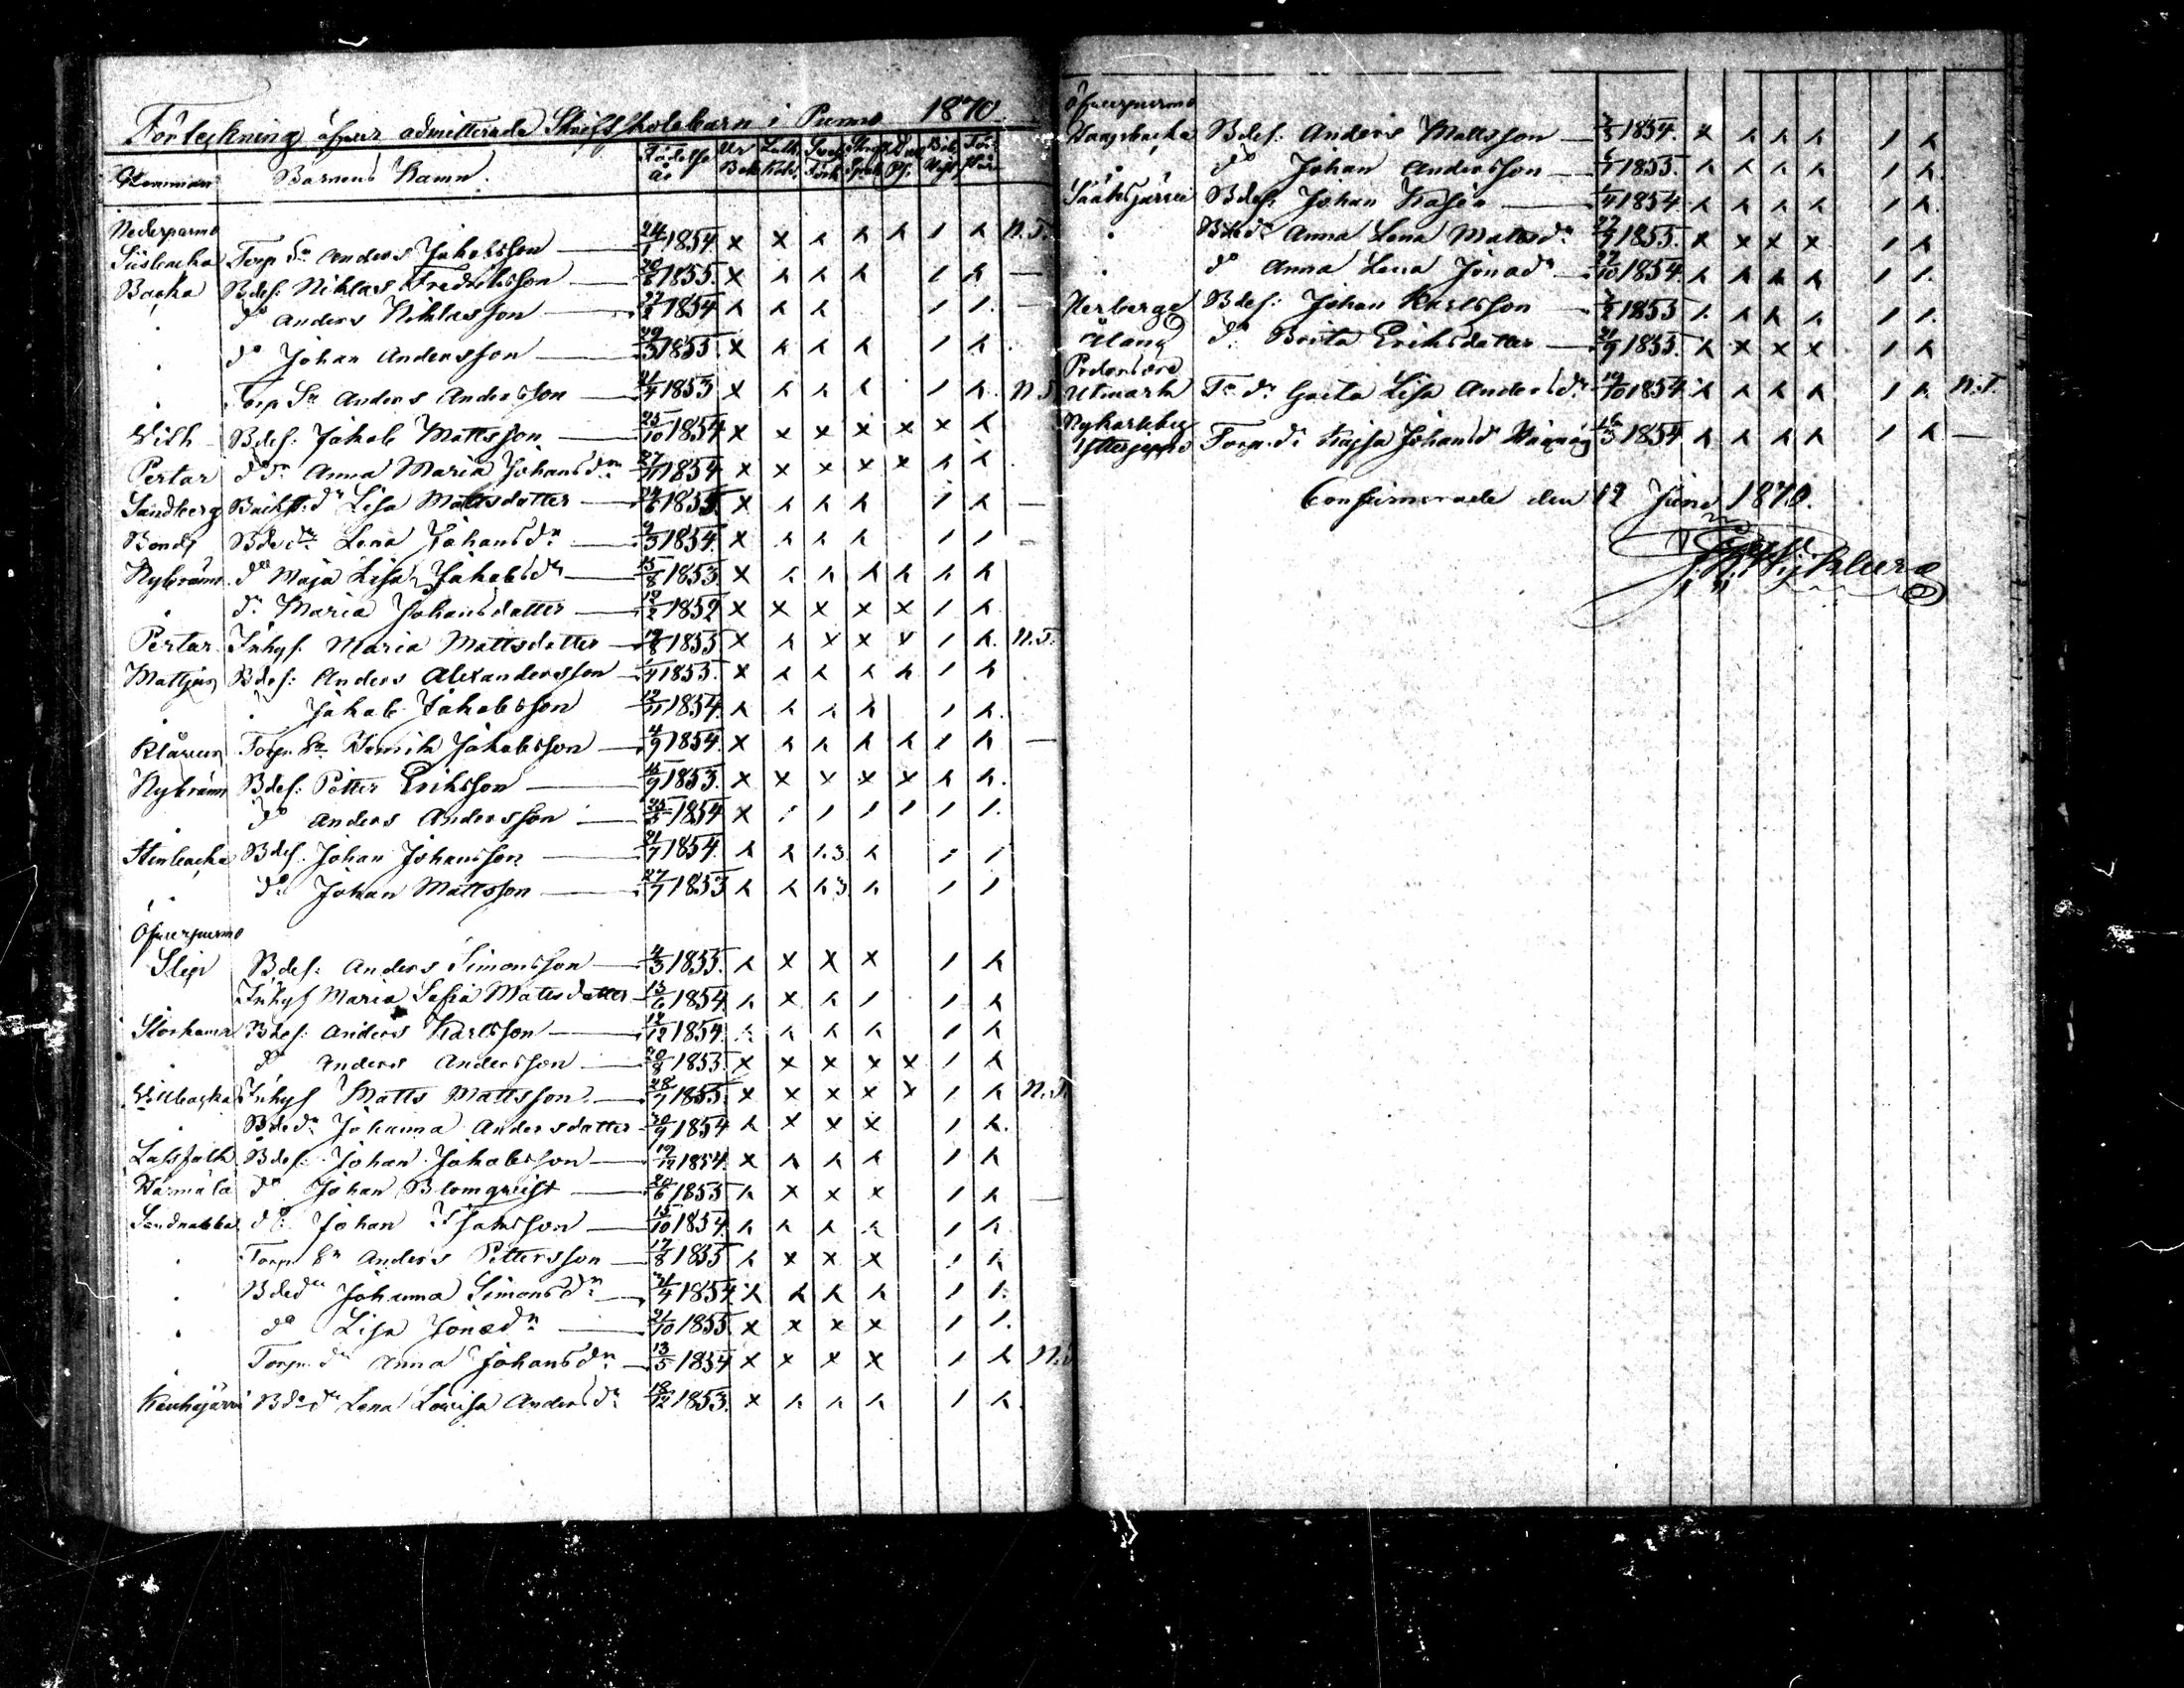 Förteckning öfver admitterade Skriftskolebarn i Purmo 1870.
Hemman Barnens Namn. Födelse år Ur Bok Luth. Kat. Sveb. Förk. Skrift Språk Dav. Ps. Bib. Hist. För står
Nederpurmo
Sisbacka Torp. Sn Anders Jakobsson 24/1 1854 x x h h h 1 h N.T.
Backa Bdes: Niklas Fredriksson 1855. x h h h 1 h —
" do Anders Niklasson 27/2 1854 h h h 1 1. —
" do Johan Andersson 29/3 1855. x h h h 1 h
" Torp Sn Anders Andersson 21/4 1853 x h h h 1 h. N.T.
With Bdes: Jakob Mattsson 25/10 1854 x x x x x x h
Pertar do dr Anna Maria Johansdr 27/11 1854 x x x x x h h
Sandberg dr Lisa Mattsdotter 24/6 1855 x h h h 1 h —
Bonds Bdedr Lena Johansdr 9/3 1854. x h h h 1 1 —
Nybränn do Maja Lisa Jakobsdr 15/8 1853 x h h h h h h
" dr Maria Johansdotter 12/2 1852 x x x x x 1 h
Pertar Inhys. Maria Mattsdotter 19/8 1855 x h x x x 1 h. N.T.
Mattjus Bdes: Anders Alexandersson 1/4 1855. x h h h h 1 h
" " Jakob Jakobsson 12/11 1854. h h h h 1 h.
Klavus Torp. Sn Henrik Jakobsson 4/9 1854. x h h h h 1 h —
Nybränn Bdes: Petter Eriksson 15/9 1853. x x x x x h h.
" do Anders Andersson 25/5 1854 x 1 1 1 1 1 1.
Stenbacka Bdes. Johan Johansson 21/7 1854. h h h.3. h 1 1
" do Johan Mattsson 27/7 1853 h h h.3. h 1 1
Öfverpurmo
Slip Bdes: Anders Simonsson 4/3 1855. h x x x 1 h
Inhys Maria Sofia Mattsdotter 13/6 1854. h x h 1 1 h
Storkamp Bdes: Anders Karlsson 12/12 1854. h h h h 1 h
" do Anders Andersson 20/8 1853. x x x x x 1 h
Willbacka Inhys Matts Mattsson 28/7 1855. x x x x x 1 h N.T.
" Bdedr Johanna Andersdotter 30/9 1854 h x x x 1 h.
Lassfolk Bdes: Johan Jakobsson 19/12 1854 x h h h 1 h
Wärnåla do Johan Blomqvist 20/6 1855 h x x x 1 h —
Sandnabba do: Johan Isaksson 15/10 1854. h h h h 1 h.
" Torp Sn Anders Pettersson 17/8 1855 h x x x 1 h
" Bdedr Johanna Simonsdr 21/4 1854. h h h h 1 1.
" do Lisa Jonædr 21/10 1855. x x x x 1 1.
" Torp. dr Anna Johansdr 13/5 1854 x x x x 1 h N.T.
Kauhajärvi Bdedr Lena Lovisa Andersdr 18/12 1853. x h h h 1 h.
Öfverpurmo
Haapbacka Bdes. Anders Mattsson 1854. x h h h 1 h
" do Johan Andersson 6/1 1855. h h h h 1 h.
Sääksjärvi Bdes. Johan Kasén 1/4 1854 h h h h 1 h.
" Bdedr Anna Lena Mattsdr 27/7 1855. x x x x 1 h
" do Anna Lena Jonædr 27/10 1854. h h h h 1 1.
Nerberga Bdes: Johan Karlsson 1/2 1853 h h h h 1 1.
Åläng dr Brita Eriksdotter 21/9 1855. h x x x 1 h
Pedersöre
Utmark To dr Greta Lisa Andersdr 19/10 1854 h h h h 1 h N.T.
Nykarleby
Ytterjeppo Torp. dr Kajsa Johansdr 16/3 1854 h h h h 1 h —
Confirmerade den 12 Juni 1870.